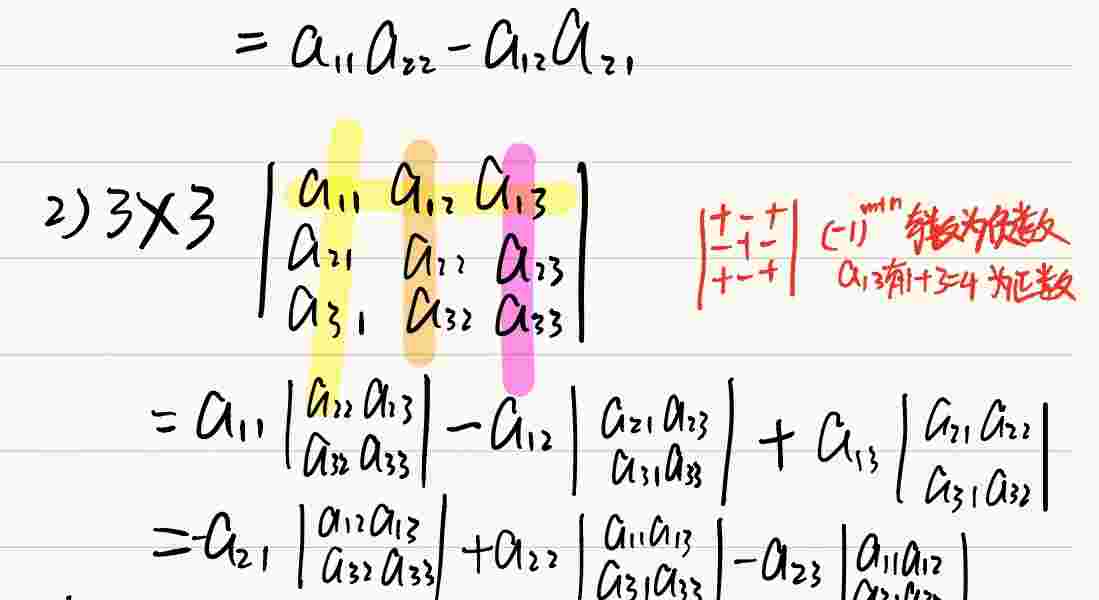 = a₁₁a₂₂ - a₁₂a₂₁
2) 3×3 | a₁₁ a₁₂ a₁₃ |
| a₂₁ a₂₂ a₂₃ |
| a₃₁ a₃₂ a₃₃ |
| + - + | (-1)^{m+n} 奇数为负数
| - + - | a₁₃有1+3=4 为正数
| + - + |
= a₁₁ | a₂₂ a₂₃ | - a₁₂ | a₂₁ a₂₃ | + a₁₃ | a₂₁ a₂₂ |
| a₃₂ a₃₃ | | a₃₁ a₃₃ | | a₃₁ a₃₂ |
= -a₂₁ | a₁₂ a₁₃ | + a₂₂ | a₁₁ a₁₃ | - a₂₃ | a₁₁ a₁₂ |
| a₃₂ a₃₃ | | a₃₁ a₃₃ |